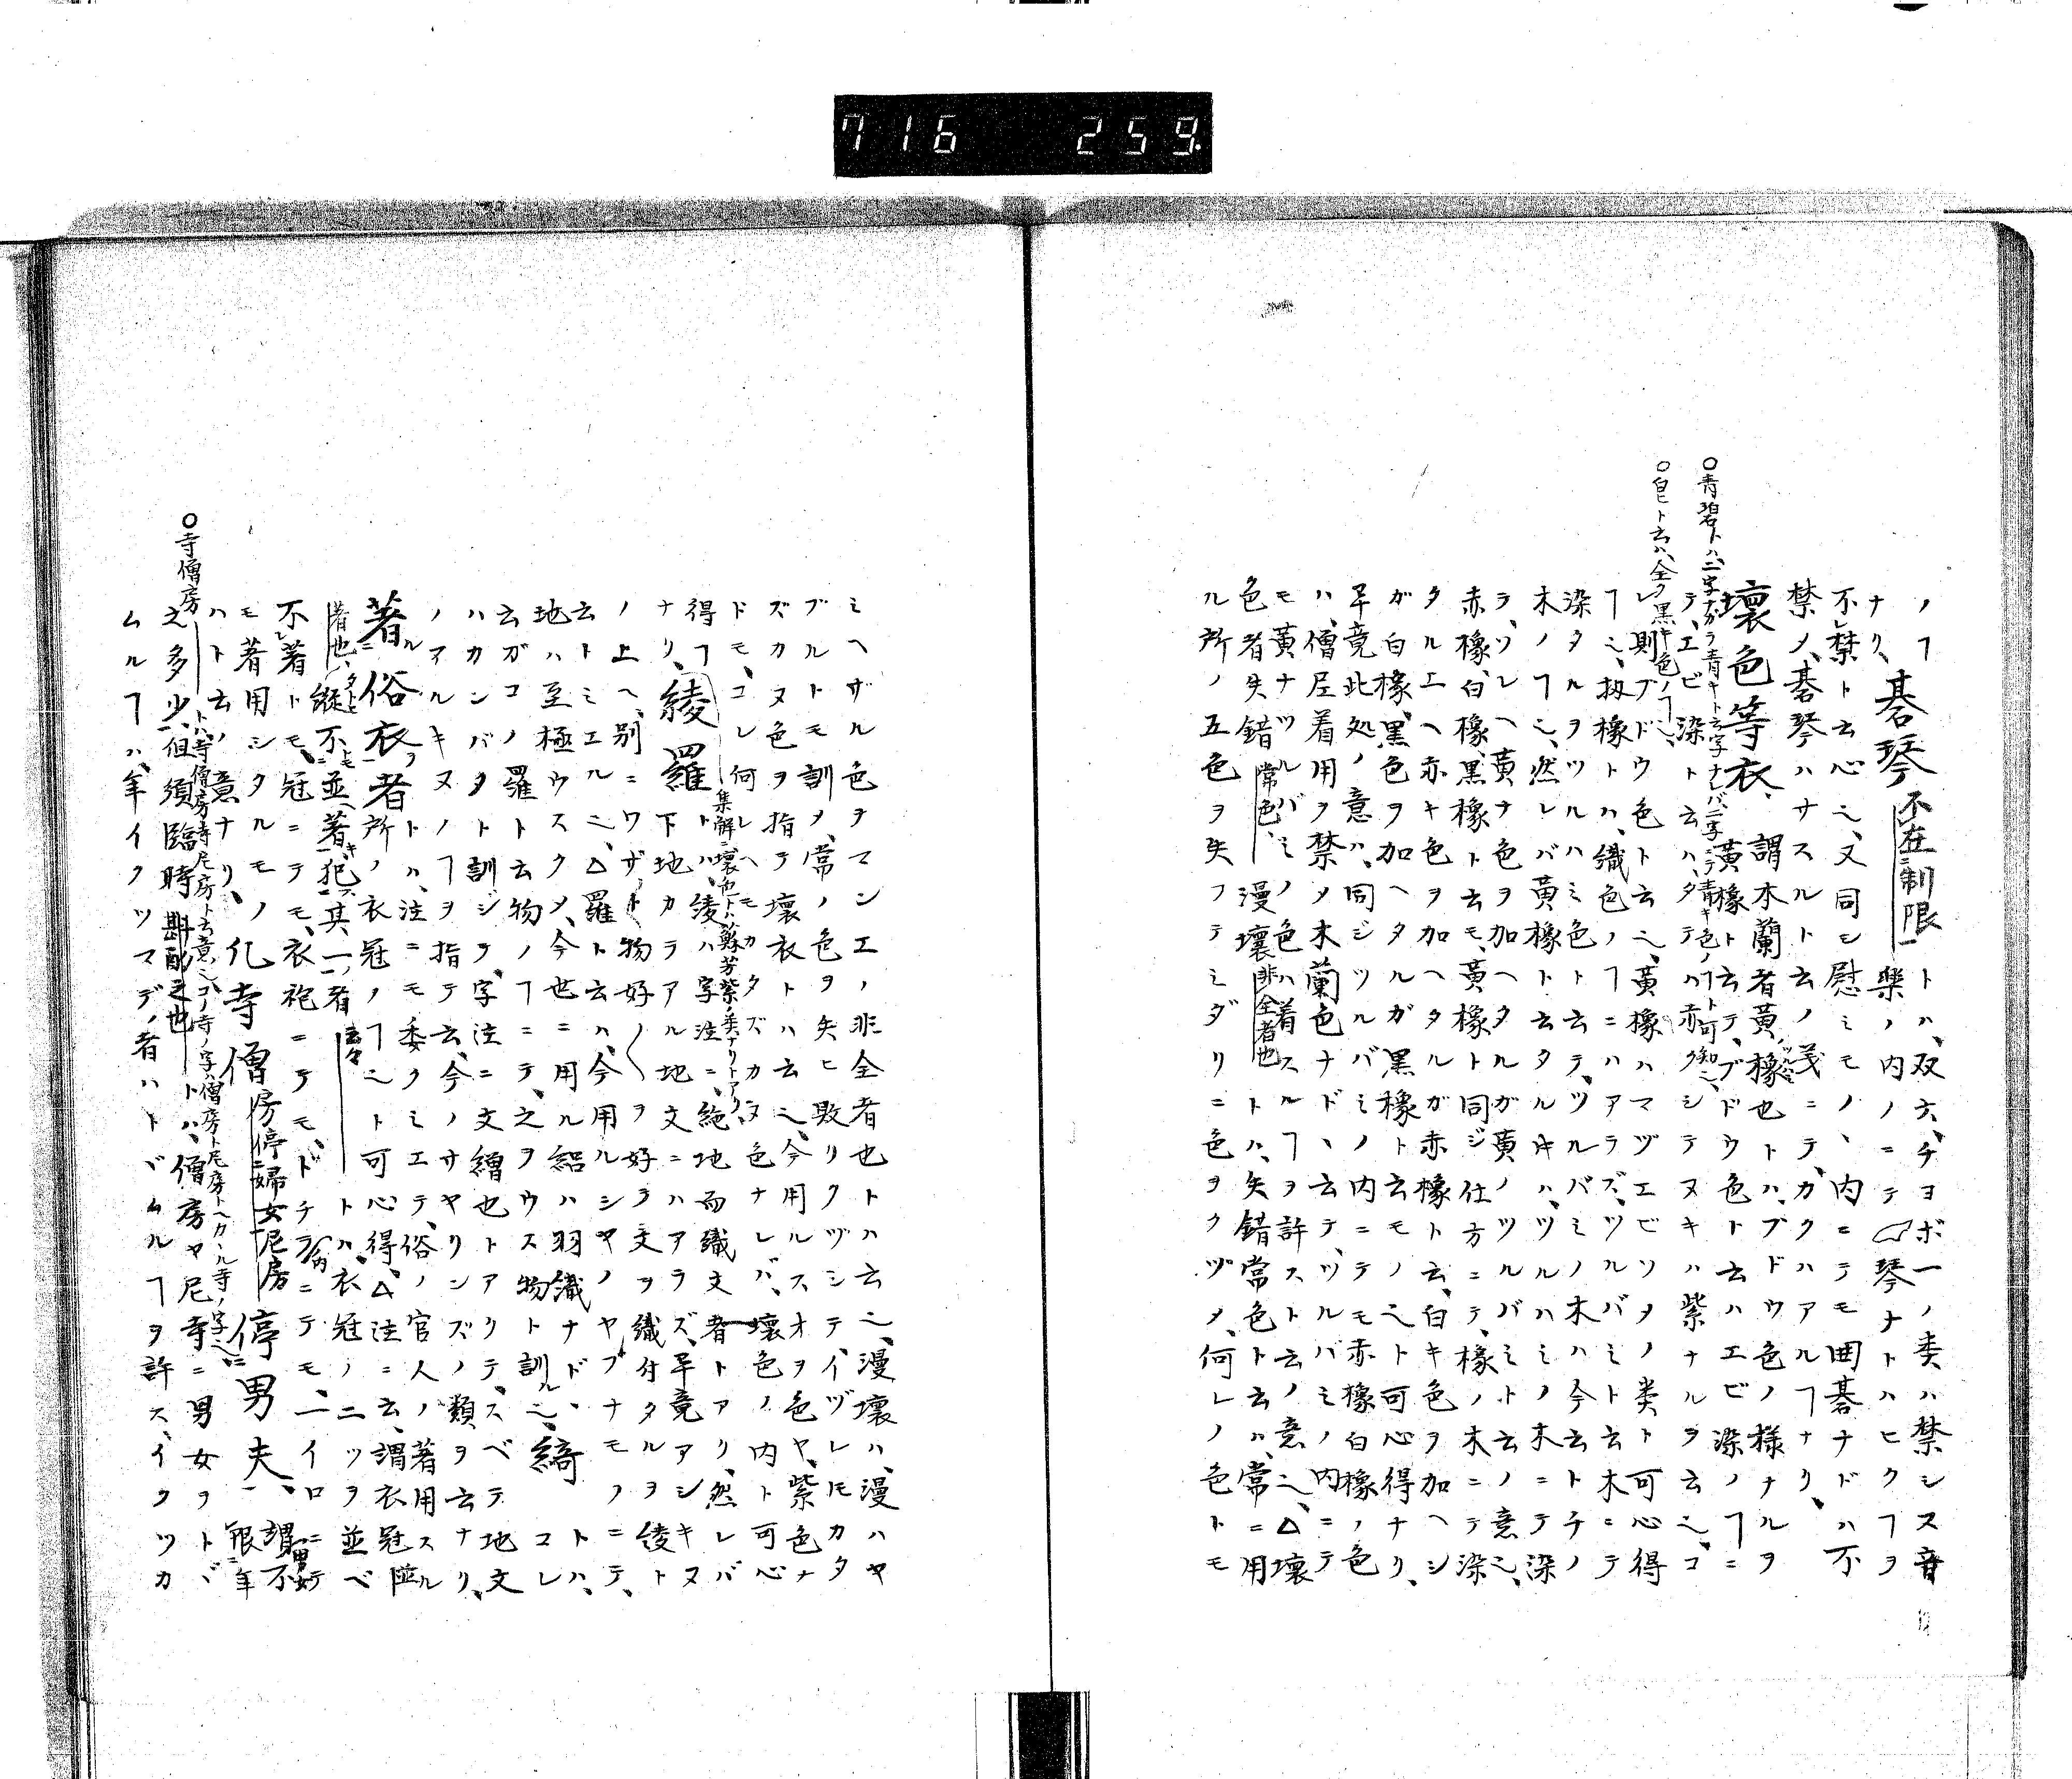 716 259.
ノヿ碁琴不在制限トハ、双六、チヨボ一ノ類ハ禁シス音
ナリ、楽ノ内ノニテ琴ナトハヒクヿヲ
不禁ト云心也、又同シ慰ミモノヽ内ニテモ囲碁ナドハ不
禁メ、碁琴ハサスルト云ノ義ニテ、カクハアルヿナリ、
壞色等衣、謂木蘭者黄橡也トハ、ブドウ色ノ様ナルヲ
黄橡ト云テ、ブドウ色ト云ハエビ染ノヿニ
○青碧トハ、二字ナガラ青キト云字ナレバ、二字ニテ青キ色ノヿト可知也、
テ、エビ染ト云ハ、タテハ赤クシテヌキハ紫ナルヲ云也、コ
○皀ヒト云ハ、全ク黒キ色ノヿ也、
レ則ブドウ色ト云也、黄橡ハマヅエビソヲノ類ト可心得
ヿ也、扨橡トハ、織色ノヿニハアラズ、ツルバミト云木ニテ
染タルヲツルハミ色ト云テ、ツルバミノ木ハ今云トチノ
木ノヿ也、然レバ黄橡ト云タルキハ、ツルハミノ木ニテ染
ラ、ソレヘ黄ナ色ヲ加ヘタルガ黄ノツルバミト云ノ意也、
赤橡、白橡、黒橡ト云モ、黄橡ト同ジ仕方ニテ、橡ノ木ニテ染
タルエヘ赤キ色ヲ加ヘタルガ赤橡ト云、白キ色ヲ加ヘシ
ガ白橡、黒色ヲ加ヘタルガ黒橡ト云モノ也ト可心得ナリ、
畢竟此処ノ意ハ、同ジツルバミノ内ニテモ赤橡白橡ノ色
ハ、僧尼着用ヲ禁メ木蘭色ナドヽ云テ、ツルバミノ内ニテ
モ黄ナツルバミノ色ハ着スルヿヲ許スト云ノ意也、△壞
色者失錯常色、漫壞非全者也トハ、矢錯常色ト云ハ、常ニ用
ル所ノ五色ヲ失フテミダリニ色ヲクヅメ、何レノ色トモ
ミヘザル色ヲマンエ、非全者也トハ云也、漫壞ハ、漫ハヤ
ブルトモ訓メ、常ノ色ヲ矢ヒ敗リクヅシテ、イヅレモカタ
ズカヌ色ヲ指テ壞衣トハ云也、今用ルスオヲ色ヤ、紫色ナ
ドモ、コレ何レヘモカタズカヌ色ナレバ、壞色ノ内ト可心
集解ニ壞色トハ蘇芳紫ノ類ナリトアリ、
得ヿト、綾ハ字注ニ、絁地而織文者トアリ、然レバ
ナリ、綾羅下地カラアル地文ニハアラズ、畢竟アシキヌ
ノ上ヘ、別ニワザト物好ノ〱ヲ好ラ文ヲ織付タルヲ綾ト
云トミエルニ、△羅ト云ハ、今用ルシヤノヤブナモノニテ、
地ハ至極ウスクメ、今世ニ用ル絽ハ羽織ナドヽ綺トハ、
云ガコノ羅ト云物ノヿニテ、之ヲウス物ト訓ル也、コレ
ハカンバタト訓ジヲ、字注ニ文繒也トアリテ、スベテ地文
ノアルキヌノヿヲ指テ云、今ノサヤリンズノ類ヲ云ナリ、
著俗衣者トハ、注ニモ委クミエテ、俗ノ官人ノ著用スル
所ノ衣冠ノヿ也ト可心得、△注ニ云、謂衣冠並
著也、縱不並著、犯其一者云々トハ、衣冠ノ二ツヲ並ベ
不著トモ、冠ニテモ、衣袍ニテモ、ドチラニテモ一イロニテ
モ著用シタルモノハト云ノ意ナリ、
凡寺僧房停婦女尼房停男夫、謂不限年
○寺僧房トハ寺僧房寺尼房ト云意也、コノ寺ノ字ハ僧房ト尼房トヘカヽル寺ノ字也、
之多少、但須臨時斟酌之也トハ、僧房ヤ尼寺ニ男女ヲトヾ
ムルヿハ、年イクツマデノ者ハトヾムルヿヲ許ス、イクツカ